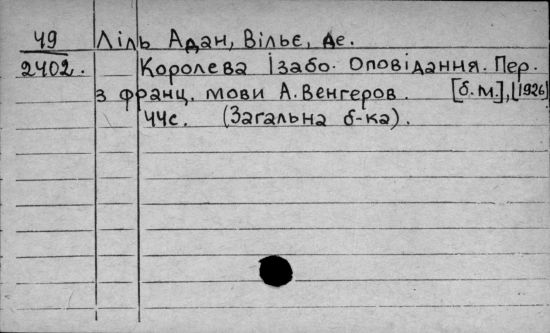 49 Ліль Адан, Вільє, де.
2402. Королева Ізабо. Оповідання. Пер.
з франц. мови А. Венгеров. [б.м.], [1926]
44с. (Загальна б-ка).